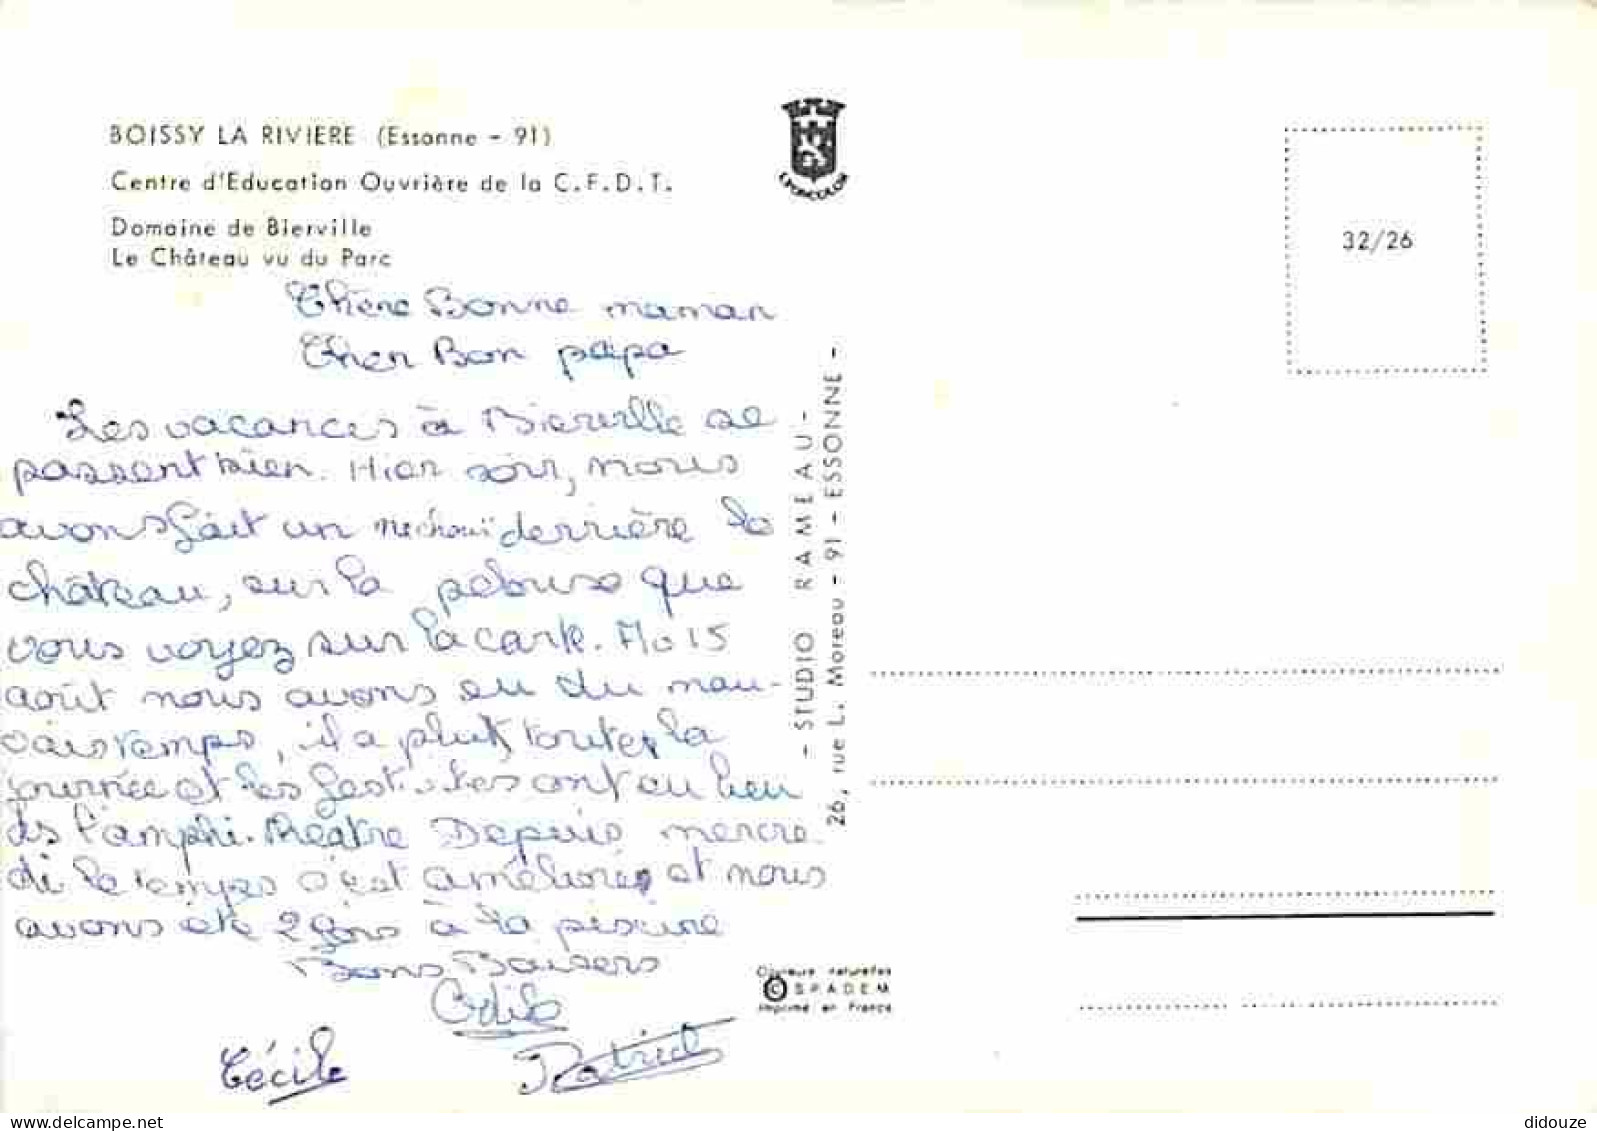 BOISSY LA RIVIERE (Essonne - 91)
Centre d'Education Ouvrière de la C.F.D.T.
Domaine de Bierville
Le Château vu du Parc
LYONCOLOR
32/26
Chère Bonne maman
Cher Bon papa
Les vacances à Bierville se
passent bien. Hier soir, nous
avons fait un Mechouï derrière le
château, sur la pelouse que
vous voyez sur la carte. Au 15
août nous avons eu du mau-
vais temps, il a plut toute la
journée et les festivités ont eu lieu
ds l'amphi-théâtre Depuis mercre-
di le temps s'est amélioré et nous
avons été 2 fois à la piscine
Bons Baisers
Odile
Cécile
Patrick
- STUDIO RAMEAU -
26, rue L. Moreau - 91 - ESSONNE -
Couleurs naturelles
© S.P.A.D.E.M.
Imprimé en France
didouze